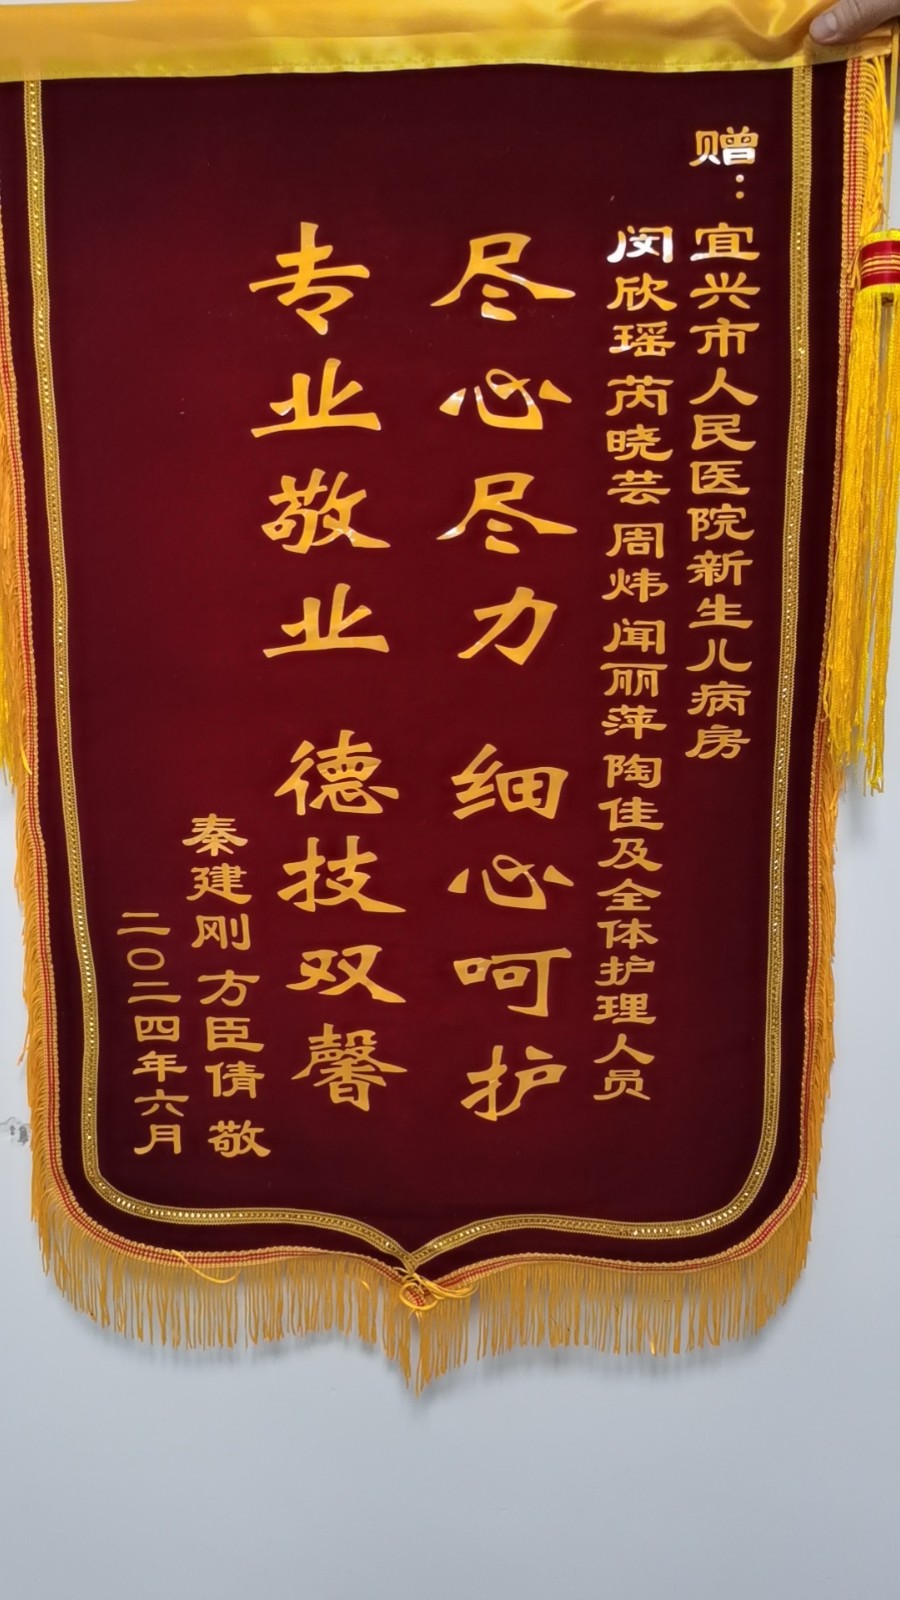 赠：宜兴市人民医院新生儿病房
闵欣瑶 芮晓芸 周炜 闻丽萍 陶佳及全体护理人员
尽心尽力 细心呵护
专业敬业 德技双馨
秦建刚 方臣倩 敬
二〇二四年六月